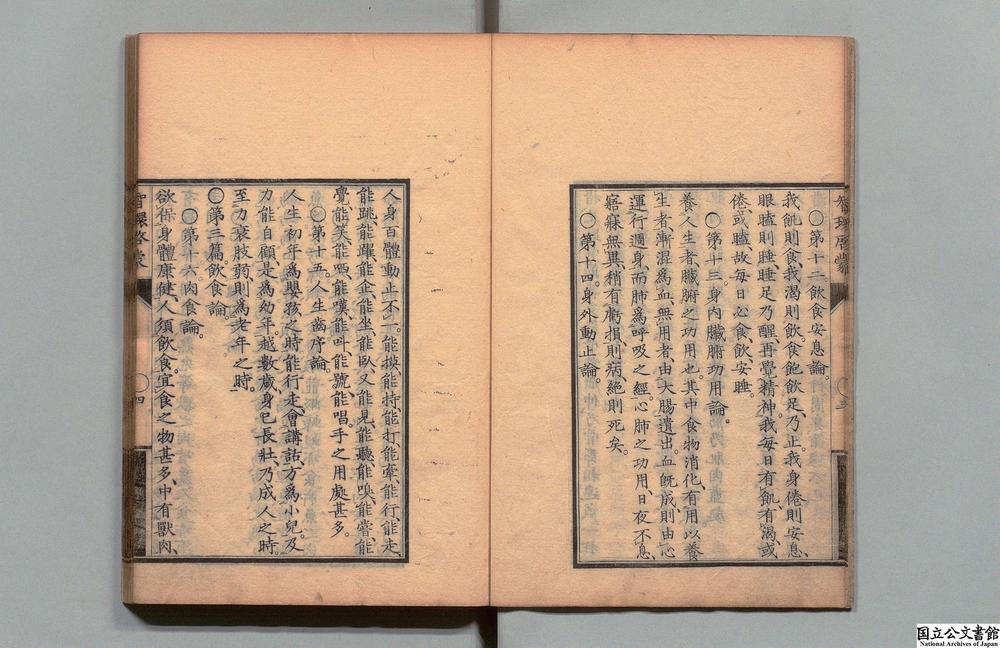 智環啓蒙
〇第十二飲食安息論。
我飢則食、我渴則飲。食飽飲足、乃止。我身倦則安息、
眼瞌則睡、睡足乃醒、再覺精神。我每日有飢、有渴、或
倦、或瞌、故每日必食、飲、安睡。
〇第十三。身內臟腑功用論。
養人生者、臟腑之功用也。其中食物消化、有用以養
生者、漸漚爲血、無用者、由大腸遺出。血旣成、則由心
運行週身、而肺爲呼吸之經。心肺之功用、日夜不息、
寤寐無異、稍有虧損、則病、絕則死矣。
〇第十四。身外動止論。
人身百體、動止不一。能摸、能持、能打、能牽、能行、能走、
能跳、能躍、能企、能坐、能臥、又能見、能聽、能嗅、能嘗、能
覺、能笑、能哂、能嘆、能呌、能號、能唱、手之用處甚多。
〇第十五。人生齒序論。
人生初年爲嬰孩之時、能行走、會講話、方爲小兒。及
力能自顧、是爲幼年。越數歲、身已長壯、乃成人之時、
至力衰肢弱、則爲老年之時。
〇第三篇。飲食論。
〇第十六。肉食論。
欲保身體康健、人須飲食。宜食之物甚多、中有獸肉、
智環啓蒙
〇四
国立公文書館
National Archives of Japan